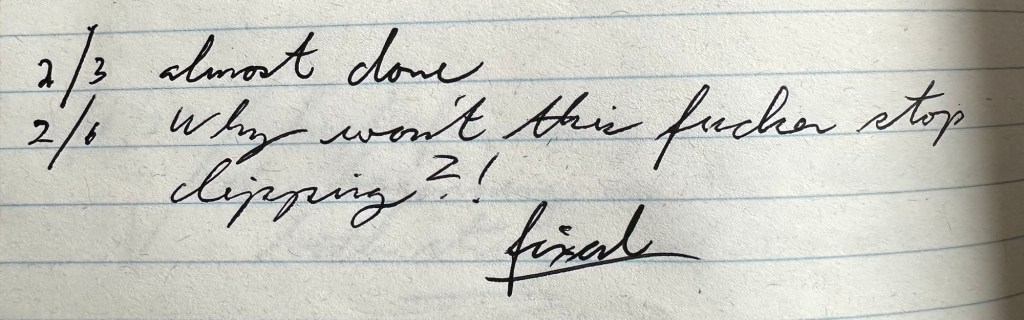 2/3 almost done
2/6 Why won't this fucker stop
clipping?!
fixed